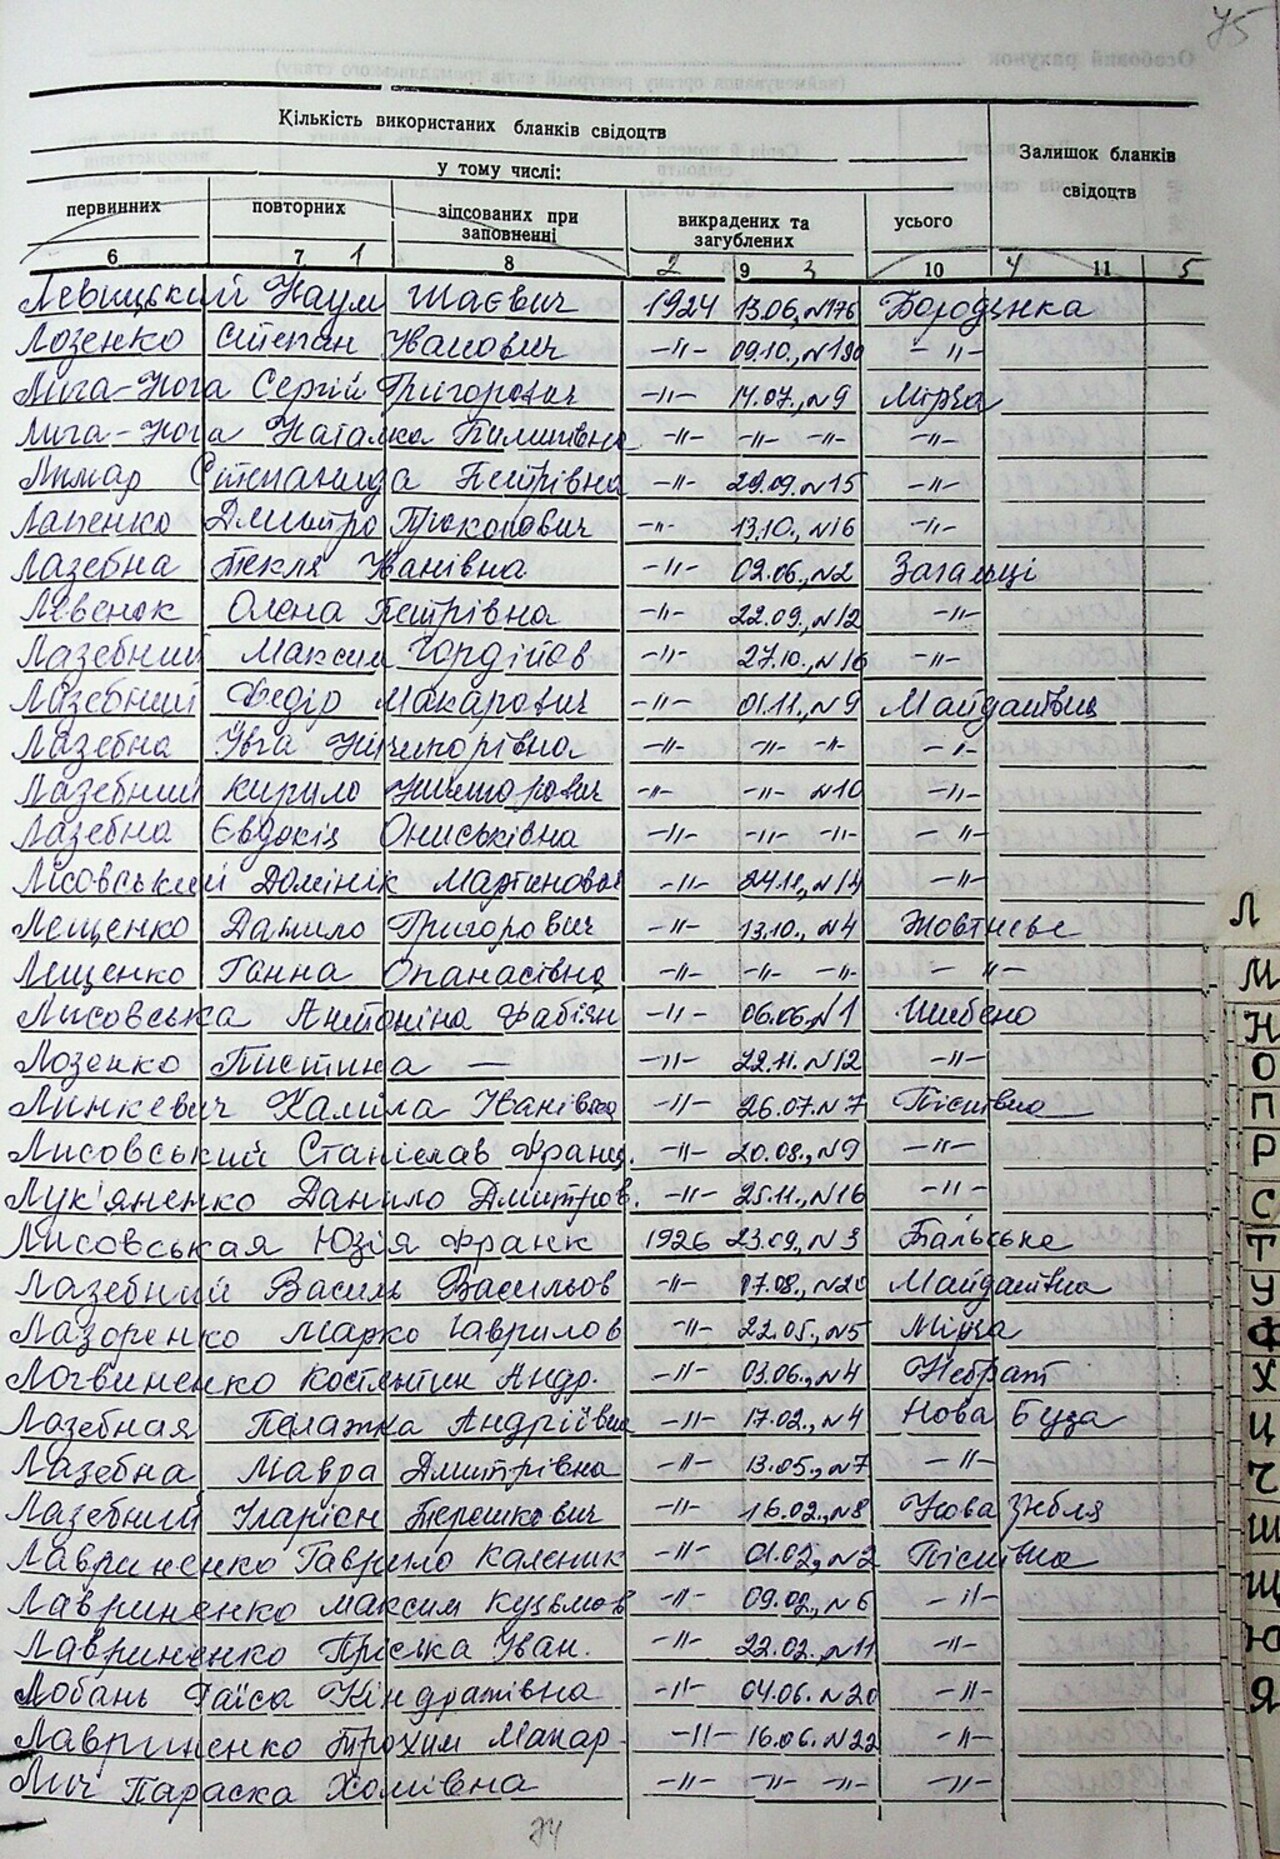 75
Кількість використаних бланків свідоцтв
Залишок бланків свідоцтв
у тому числі:
первинних повторних зіпсованих при заповненні викрадених та загублених усього
6 7 1 8 2 9 3 10 4 11 5
Левицький Наум Шаєвич 1924 13.06, N176 Бородянка
Лозенко Степан Іванович -"- 09.10., N190 -"-
Лига-Нога Сергій Григорович -"- 14.07., N9 Мірча
Лига-Нога Наталка Пилипівна -"- -"- -"- -"-
Лимар Степанида Петрівна -"- 29.09. N15 -"-
Лапенко Дмитро Прокопович -"- 13.10., N16 -"-
Лазебна Текля Іванівна -"- 02.06., N2 Загальці
Левенок Олена Петрівна -"- 22.09., N12 -"-
Лазебний Максим Гордійов -"- 27.10., N16 -"-
Лазебний Федір Макарович -"- 01.11., N9 Майданівка
Лазебна Івга Ничипорівна -"- -"- -"- -"-
Лазебний Кирило Ничипорович -"- -"- N10 -"-
Лазебна Євдокія Ониськівна -"- -"- -"- -"-
Лісовський Домінік Мартинович -"- 24.11., N14 -"-
Лещенко Данило Григорович -"- 13.10., N4 Жовтнєве
Лещенко Ганна Опанасівна -"- -"- -"- -"-
Лисовська Антоніна Фабіян -"- 06.06., N1 Шибено
Лозенко Пистина — -"- 22.11. N12 -"-
Линкевич Каміла Іванівна -"- 26.07. N7 Пісківка
Лисовський Станіслав Франц. -"- 20.08., N9 -"-
Лук'яненко Данило Дмитров. -"- 25.11., N16 -"-
Лисовская Юзія Франк 1926 23.09., N3
Лазебний Василь Васильов -"- 17.08., N20 Майданівка
Лазоренко Марко Гаврилов -"- 22.05., N5 Мірча
Логвиненко Костянтин Андр. -"- 03.06., N4 Небрат
Лазебная Палажка Андріївна -"- 17.02., N4 Нова Буда
Лазебна Мавра Дмитрівна -"- 13.05., N7 -"-
Лазебний Іларіон Терешкович -"- 16.02., N8 Нова Гребля
Лавриненко Гаврило Каленик -"- 01.02, N2 Пісківка
Лавриненко Максим Кузьмов -"- 09.02., N6 -"-
Лавриненко Пріська Іван. -"- 22.02. N11 -"-
Лобань Раїса Кіндратівна -"- 04.06. N20 -"-
Лавриненко Трохим Макар -"- 16.06. N22 -"-
Лич Параска Хомівна -"- -"- -"- -"-
74
Л
М
Н
О
П
Р
С
Т
У
Ф
Х
Ц
Ч
Ш
Щ
Ю
Я